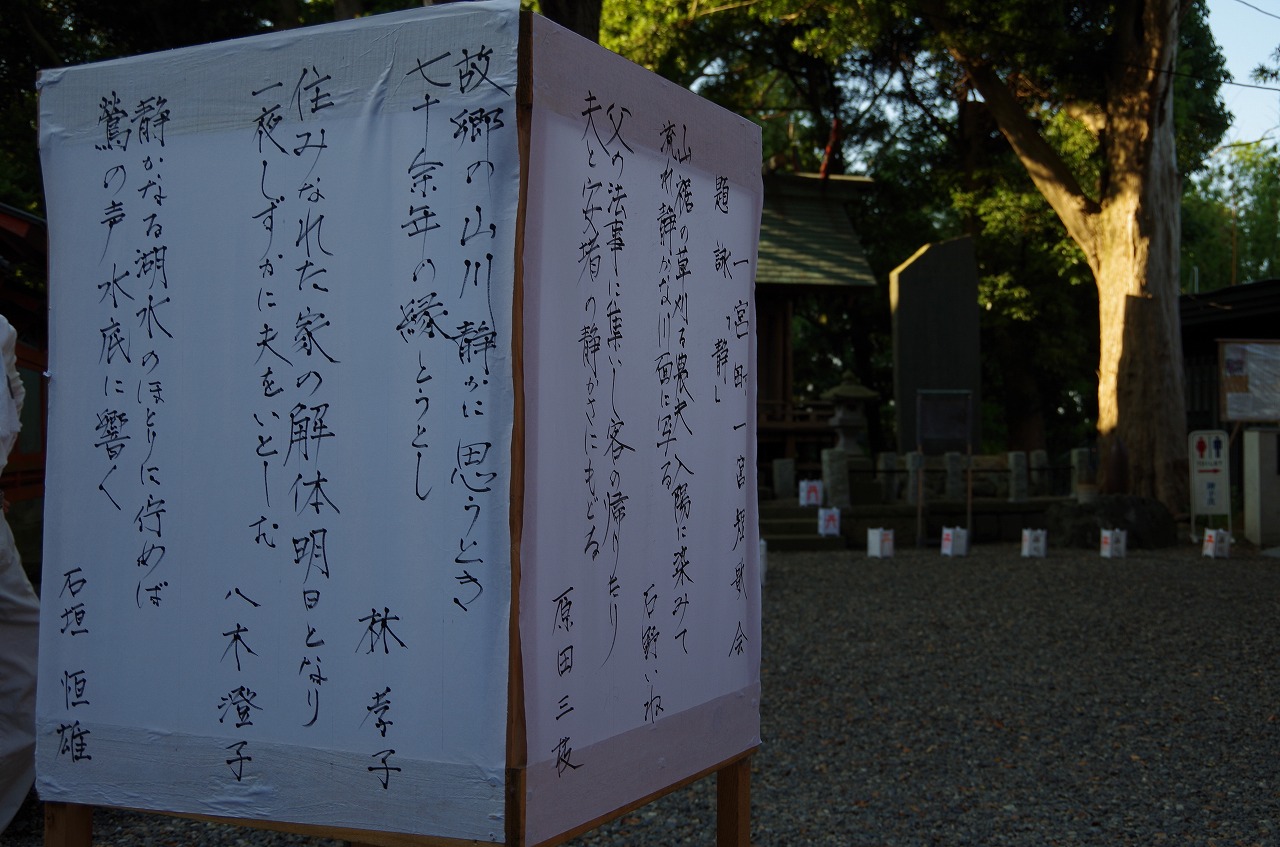 一宮町 一宮短歌会
題詠「静」
山裾の草刈る農夫入陽に染みて
流れ静かな川面に写る
石野いね
父の法事に集いし客の帰りたり
夫と安堵の静かさにもどる
原田三枝
故郷の山川静かに思うとき
七十余年の縁とうとし
林 孝子
住みなれた家の解体明日となり
一夜しずかに夫をいとしむ
八木澄子
静かなる湖水のほとりに佇めば
鶯の声水底に響く
石垣 恒雄